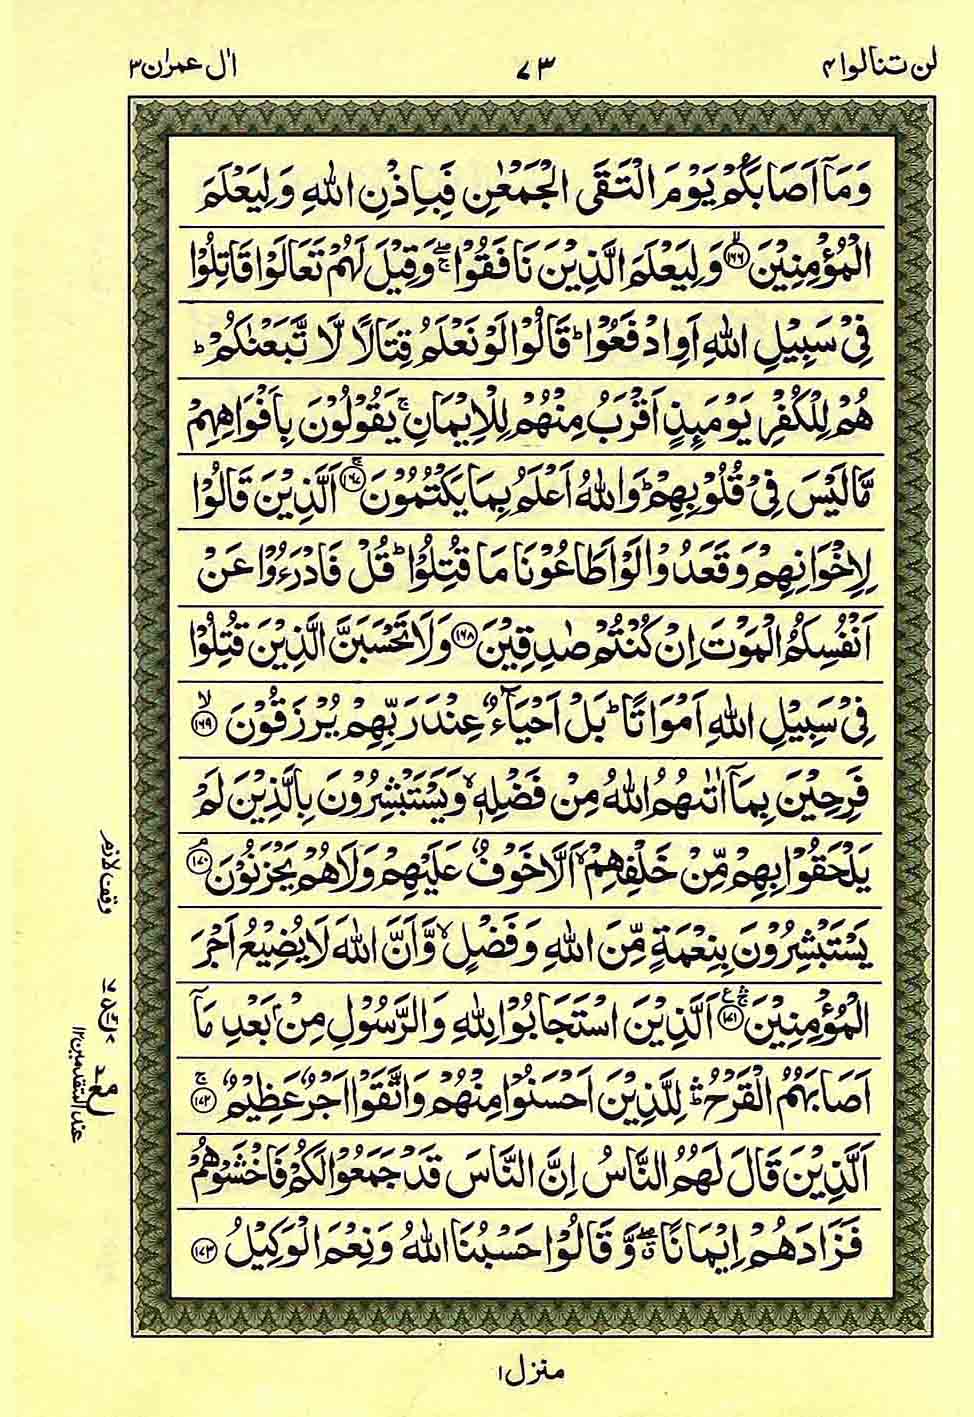 لن تنالوا ۴
۷۳
اٰل عمرٰن ۳
وَمَآ اَصَابَكُمْ يَوْمَ الْتَقَى الْجَمْعٰنِ فَبِاِذْنِ اللّٰهِ وَلِيَعْلَمَ
الْمُؤْمِنِيْنَ ۙ‏﴿۱۶۶﴾ وَلِيَعْلَمَ الَّذِيْنَ نَافَقُوْا ۖۚ وَقِيْلَ لَهُمْ تَعَالَوْا قَاتِلُوْا
فِىْ سَبِيْلِ اللّٰهِ اَوِ ادْفَعُوْا ؕ قَالُوْا لَوْ نَعْلَمُ قِتَالًا لَّا تَّبَعْنٰكُمْ ؕ
هُمْ لِلْكُفْرِ يَوْمَىِٕذٍ اَقْرَبُ مِنْهُمْ لِلْاِيْمَانِ ۚ يَقُوْلُوْنَ بِاَفْوَاهِهِمْ
مَّا لَيْسَ فِىْ قُلُوْبِهِمْ ؕ وَاللّٰهُ اَعْلَمُ بِمَا يَكْتُمُوْنَ ۚ‏﴿۱۶۷﴾ اَلَّذِيْنَ قَالُوْا
لِاِخْوَانِهِمْ وَقَعَدُوْا لَوْ اَطَاعُوْنَا مَا قُتِلُوْا ؕ قُلْ فَادْرَءُوْا عَنْ
اَنْفُسِكُمُ الْمَوْتَ اِنْ كُنْتُمْ صٰدِقِيْنَ ‏﴿۱۶۸﴾ وَلَا تَحْسَبَنَّ الَّذِيْنَ قُتِلُوْا
فِىْ سَبِيْلِ اللّٰهِ اَمْوَاتًا ؕ بَلْ اَحْيَآءٌ عِنْدَ رَبِّهِمْ يُرْزَقُوْنَ ۙ‏﴿۱۶۹﴾
فَرِحِيْنَ بِمَآ اٰتٰىهُمُ اللّٰهُ مِنْ فَضْلِهٖ ۙ وَيَسْتَبْشِرُوْنَ بِالَّذِيْنَ لَمْ
يَلْحَقُوْا بِهِمْ مِّنْ خَلْفِهِمْ ۙ اَلَّا خَوْفٌ عَلَيْهِمْ وَلَا هُمْ يَحْزَنُوْنَ ۘ‏﴿۱۷۰﴾
يَسْتَبْشِرُوْنَ بِنِعْمَةٍ مِّنَ اللّٰهِ وَفَضْلٍ ۙ وَّاَنَّ اللّٰهَ لَا يُضِيْعُ اَجْرَ
الْمُؤْمِنِيْنَ ‏﴿۱۷۱﴾ اَلَّذِيْنَ اسْتَجَابُوْا لِلّٰهِ وَالرَّسُوْلِ مِنْۢ بَعْدِ مَآ
اَصَابَهُمُ الْقَرْحُ ۛؕ لِلَّذِيْنَ اَحْسَنُوْا مِنْهُمْ وَاتَّقَوْا اَجْرٌ عَظِيْمٌ ۚ‏﴿۱۷۲﴾
اَلَّذِيْنَ قَالَ لَهُمُ النَّاسُ اِنَّ النَّاسَ قَدْ جَمَعُوْا لَكُمْ فَاخْشَوْهُمْ
فَزَادَهُمْ اِيْمَانًا ۖۗ وَّقَالُوْا حَسْبُنَا اللّٰهُ وَنِعْمَ الْوَكِيْلُ ‏﴿۱۷۳﴾
وقف لازم
عند المتقدمين ۱۲
منزل ۱